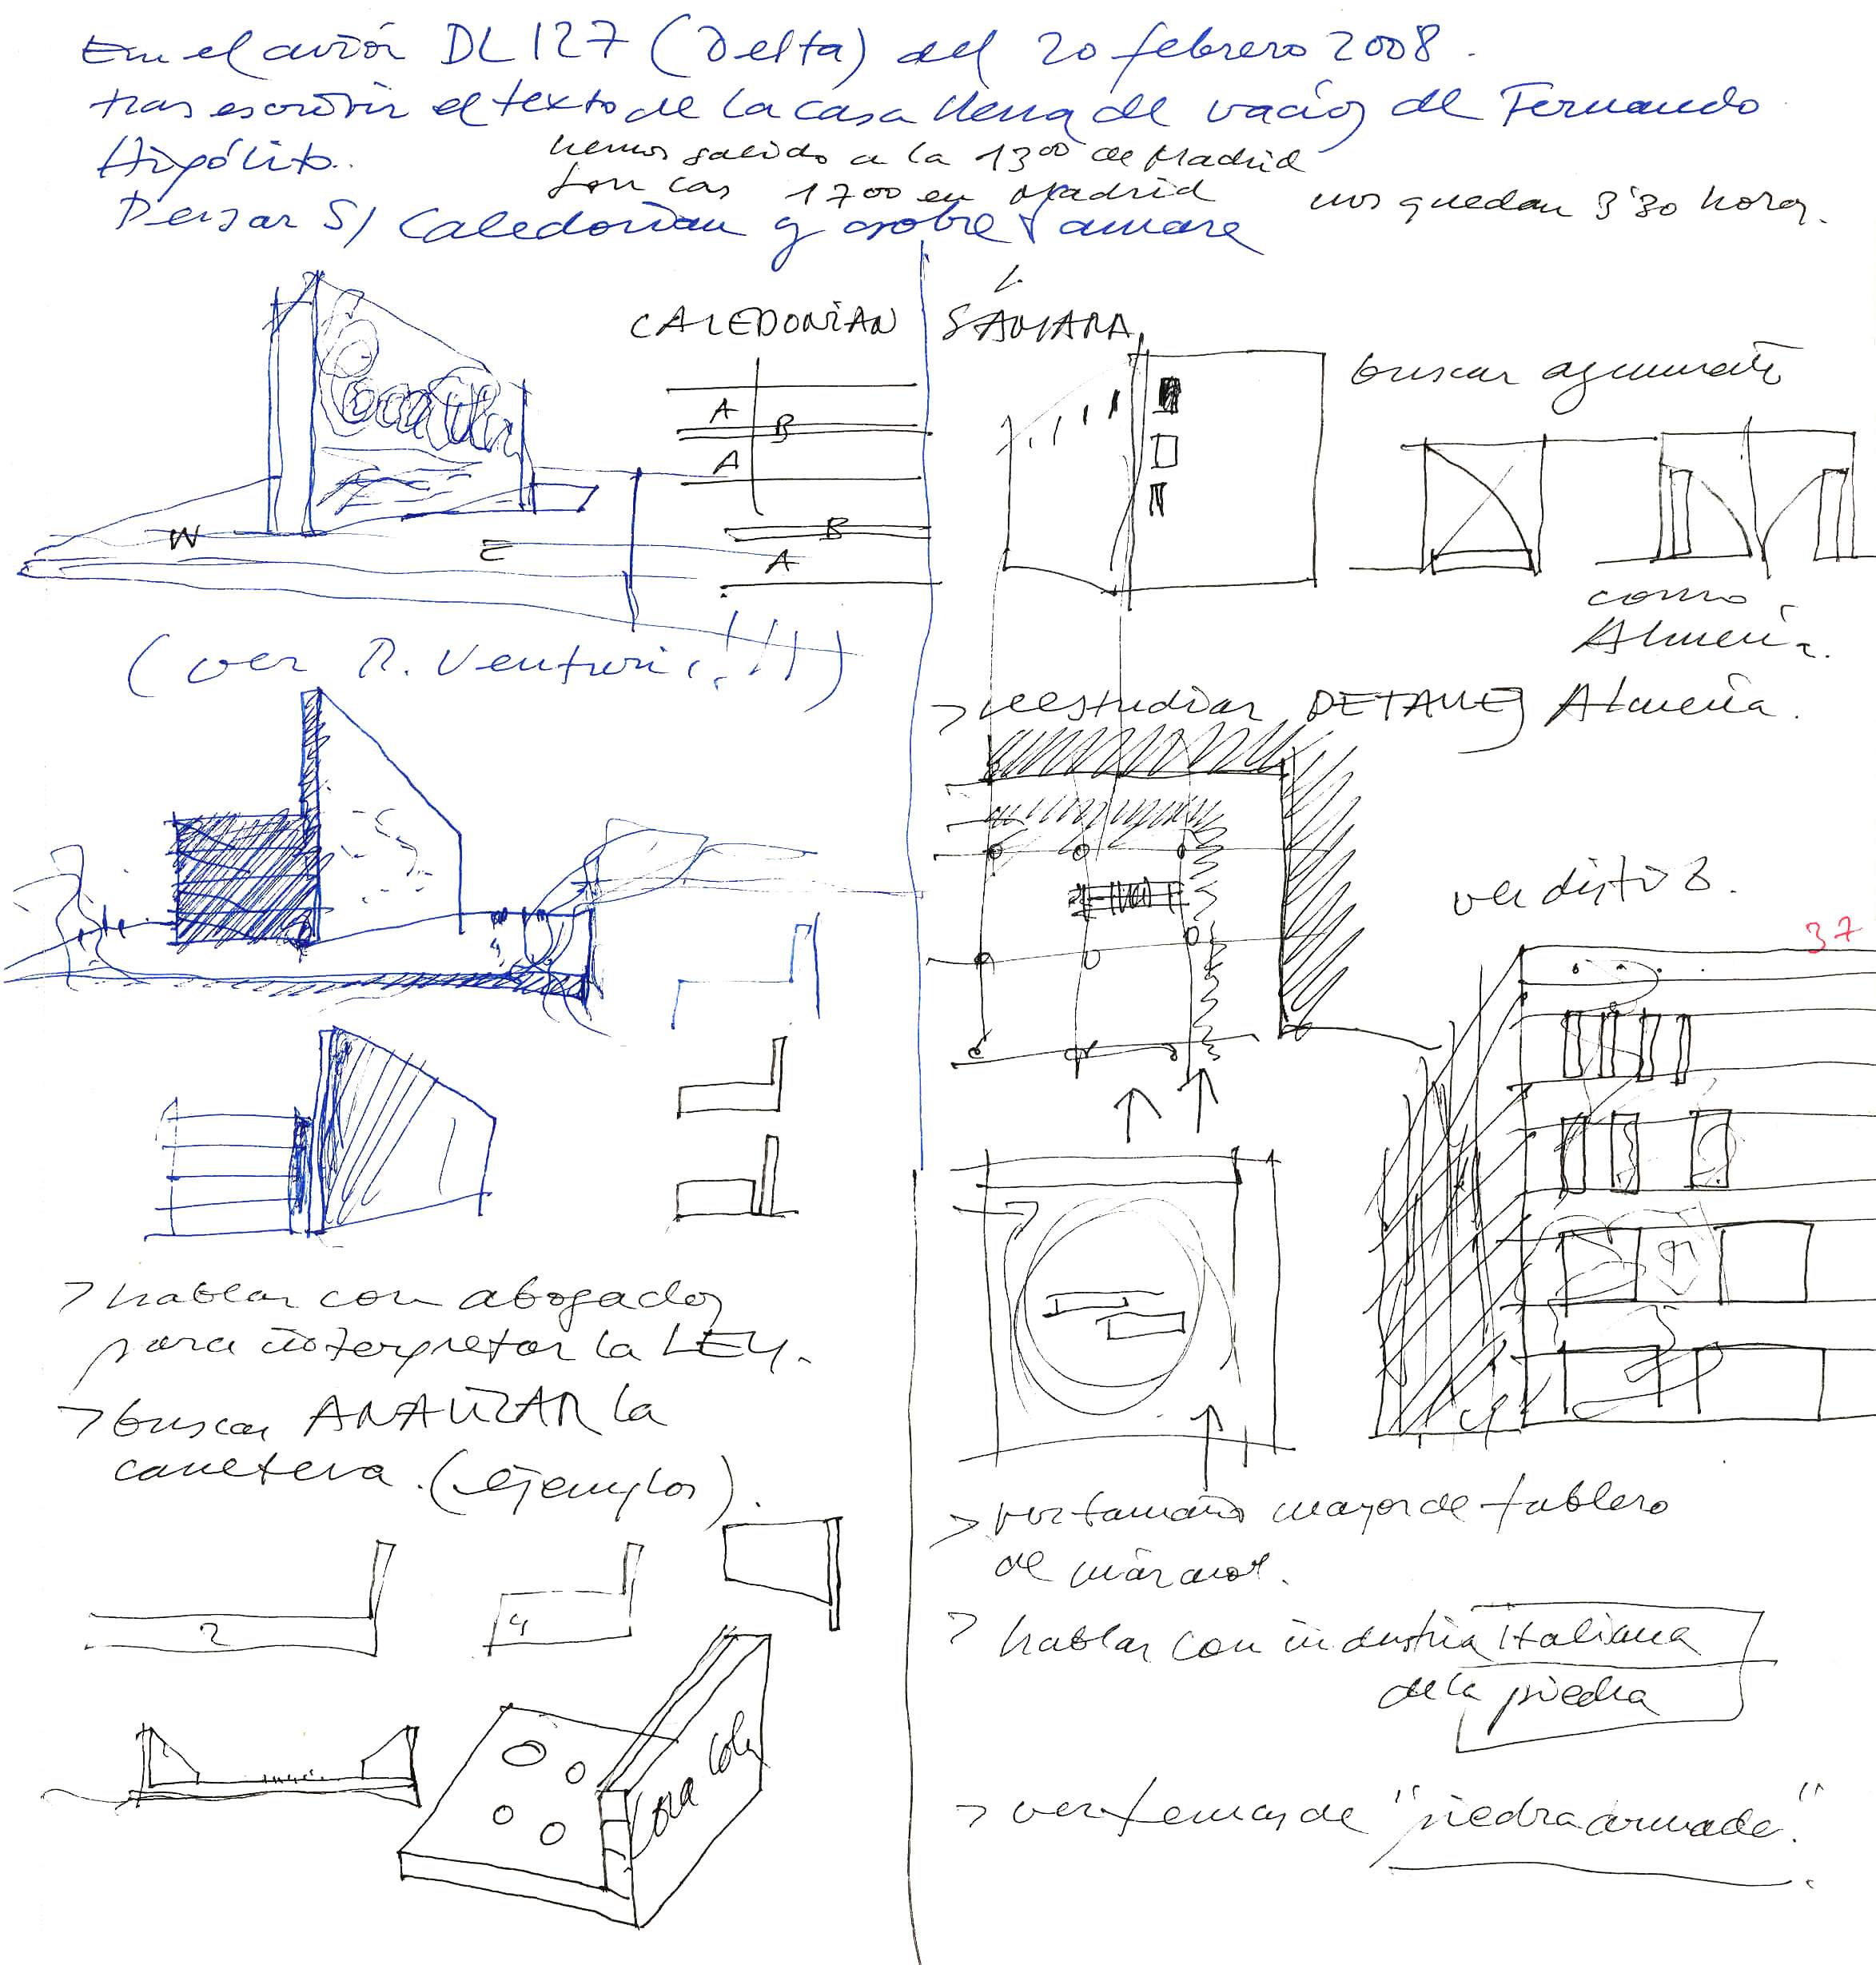 En el avión DL 127 (Delta) del 20 febrero 2008.
tras escribir el texto de la casa llena de vacío, de Fernando
Hipólito.
hemos salido a la 13 00 de Madrid
son las 17 00 en Madrid
nos quedan 3'30 horas.
Pensar S/ Caledonian y sobre Samara
CALEDONIAN
SAMARA
A
B
A
B
A
W
E
Coca Cola
buscar argumento
como
Almería.
(ver R. Venturi ¡!!!!)
> reestudiar DETALLES Almería.
ver distrib.
37
> hablar con abogados
para interpretar la LEY.
> buscar ANALIZAR la
carretera. (ejemplos).
2
4
Coca Cola
> ver tamaño mayor de tablero
de mármol.
> hablar con industria italiana
de la piedra
> ver temas de "piedra armada".